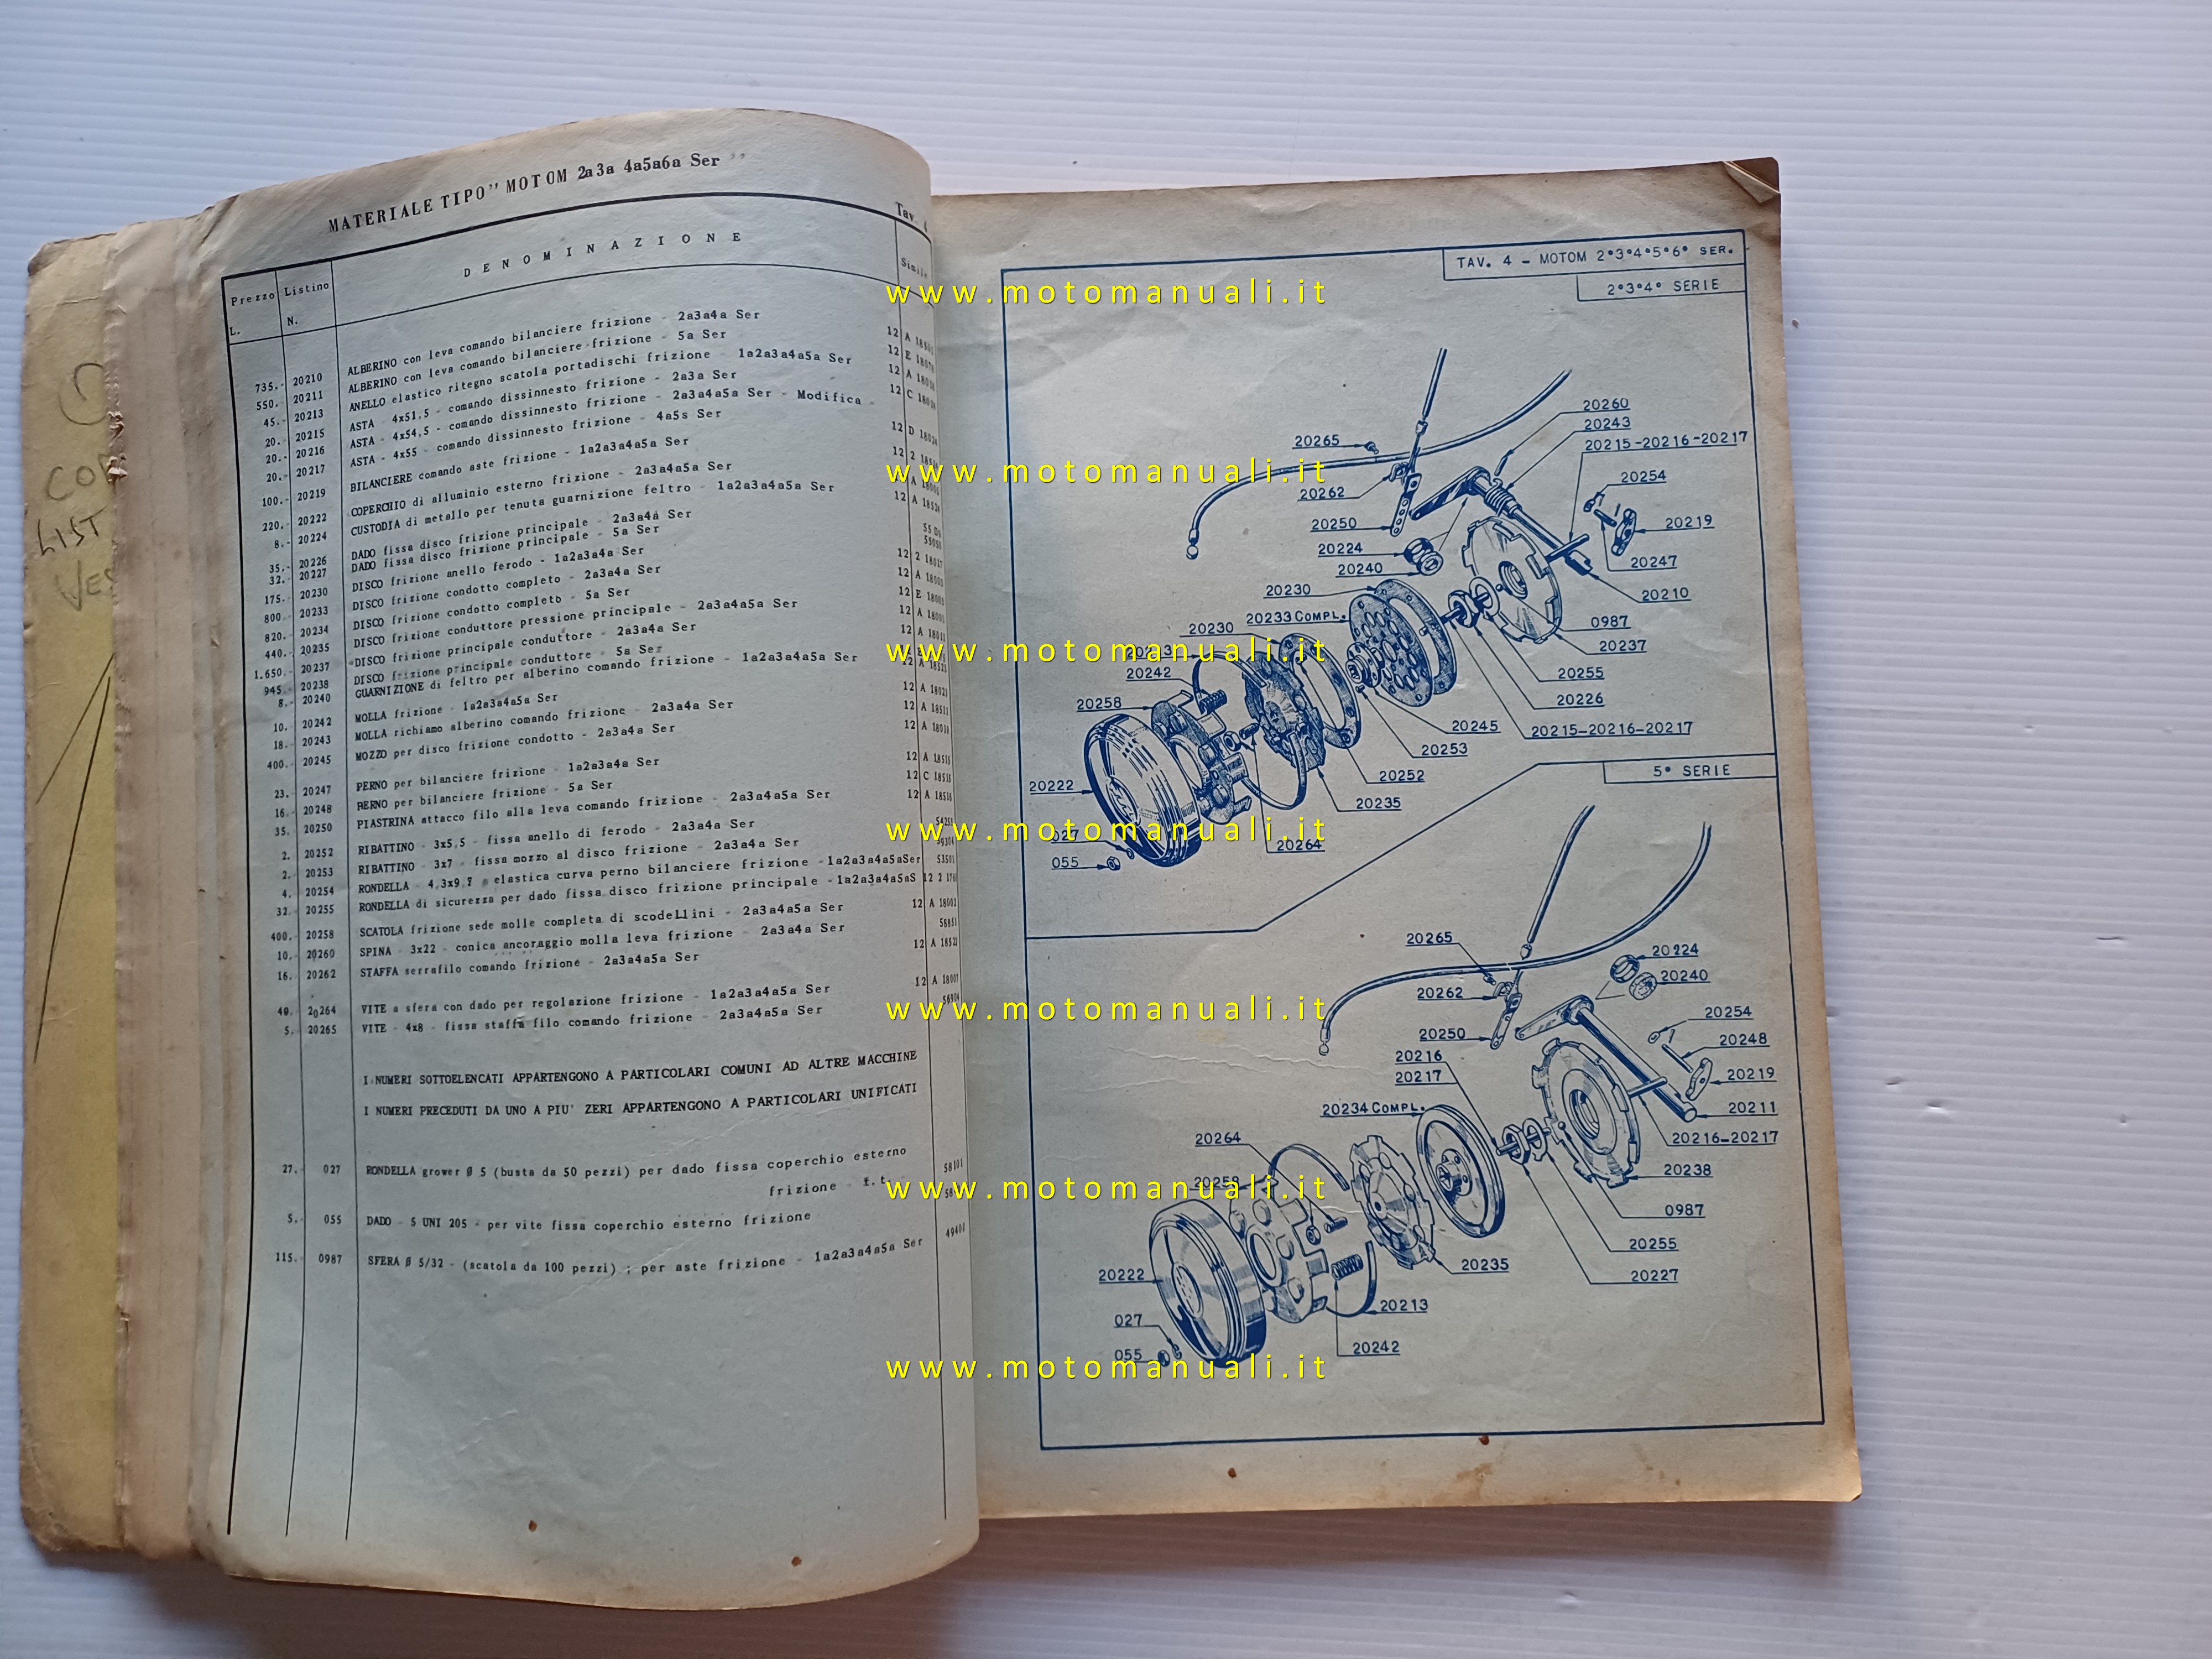 MATERIALE TIPO" MOTOM 2a3a 4a5a6a Ser "
Tav. 4
Prezzo L.
Listino N.
DENOMINAZIONE
735.- 20210 ALBERINO con leva comando bilanciere frizione - 2a3a4a Ser
550.- 20211 ALBERINO con leva comando bilanciere frizione - 5a Ser
45.- 20213 ANELLO elastico ritegno scatola portadischi frizione - 1a2a3a4a5a Ser
20.- 20215 ASTA - 4x51,5 - comando dissinnesto frizione - 2a3a Ser
20.- 20216 ASTA - 4x54,5 - comando dissinnesto frizione - 2a3a4a5a Ser - Modifica -
20.- 20217 ASTA - 4x55 - comando dissinnesto frizione - 4a5s Ser
100.- 20219 BILANCIERE comando aste frizione - 1a2a3a4a5a Ser
220.- 20222 COPERCHIO di alluminio esterno frizione - 2a3a4a5a Ser
8.- 20224 CUSTODIA di metallo per tenuta guarnizione feltro - 1a2a3a4a5a Ser
35.- 20226 DADO fissa disco frizione principale - 2a3a4a Ser
32.- 20227 DADO fissa disco frizione principale - 5a Ser
175.- 20230 DISCO frizione anello ferodo - 1a2a3a4a Ser
800.- 20233 DISCO frizione condotto completo - 2a3a4a Ser
820.- 20234 DISCO frizione condotto completo - 5a Ser
440.- 20235 DISCO frizione conduttore pressione principale - 2a3a4a5a Ser
1.650.- 20237 DISCO frizione principale conduttore - 2a3a4a Ser
945.- 20238 DISCO frizione principale conduttore - 5a Ser
8.- 20240 GUARNIZIONE di feltro per alberino comando frizione - 1a2a3a4a5a Ser
10.- 20242 MOLLA frizione - 1a2a3a4a5a Ser
18.- 20243 MOLLA richiamo alberino comando frizione - 2a3a4a Ser
400.- 20245 MOZZO per disco frizione condotto - 2a3a4a Ser
23.- 20247 PERNO per bilanciere frizione - 1a2a3a4a Ser
16.- 20248 PERNO per bilanciere frizione - 5a Ser
35.- 20250 PIASTRINA attacco filo alla leva comando frizione - 2a3a4a5a Ser
2.- 20252 RIBATTINO - 3x5,5 - fissa anello di ferodo - 2a3a4a Ser
2.- 20253 RIBATTINO - 3x7 - fissa mozzo al disco frizione - 2a3a4a Ser
4.- 20254 RONDELLA - 4,3x9,7 - elastica curva perno bilanciere frizione -1a2a3a4a5aSer
32.- 20255 RONDELLA di sicurezza per dado fissa disco frizione principale -1a2a3a4a5aS
400.- 20258 SCATOLA frizione sede molle completa di scodellini - 2a3a4a5a Ser
10.- 20260 SPINA - 3x22 - conica ancoraggio molla leva frizione - 2a3a4a Ser
16.- 20262 STAFFA serrafilo comando frizione - 2a3a4a5a Ser
40.- 20264 VITE a sfera con dado per regolazione frizione - 1a2a3a4a5a Ser
5.- 20265 VITE - 4x8 - fissa staffa filo comando frizione - 2a3a4a5a Ser
I NUMERI SOTTOELENCATI APPARTENGONO A PARTICOLARI COMUNI AD ALTRE MACCHINE
I NUMERI PRECEDUTI DA UNO A PIU' ZERI APPARTENGONO A PARTICOLARI UNIFICATI
27.- 027 RONDELLA grower Ø 5 (busta da 50 pezzi) per dado fissa coperchio esterno
frizione
5.- 055 DADO - 5 UNI 205 - per vite fissa coperchio esterno frizione
115.- 0987 SFERA Ø 5/32 - (scatola da 100 pezzi) ; per aste frizione - 1a2a3a4a5a Ser
TAV. 4 - MOTOM 2ª3ª4ª5ª6ª SER.
2ª3ª4ª SERIE
20260
20243
20215-20216-20217
20265
20254
20262
20219
20250
20224
20247
20240
20210
20230
20233 COMPL.
0987
20230
20237
20242
20255
20258
20226
20245
20215-20216-20217
20253
20252
20222
20235
20264
055
5ª SERIE
20265
20224
20240
20262
20254
20250
20248
20216
20217
20219
20234 COMPL.
20211
20264
20216-20217
20238
20258
0987
20255
20235
20222
20227
20213
027
20242
055
www.motomanuali.it
www.motomanuali.it
www.motomanuali.it
www.motomanuali.it
www.motomanuali.it
www.motomanuali.it
www.motomanuali.it